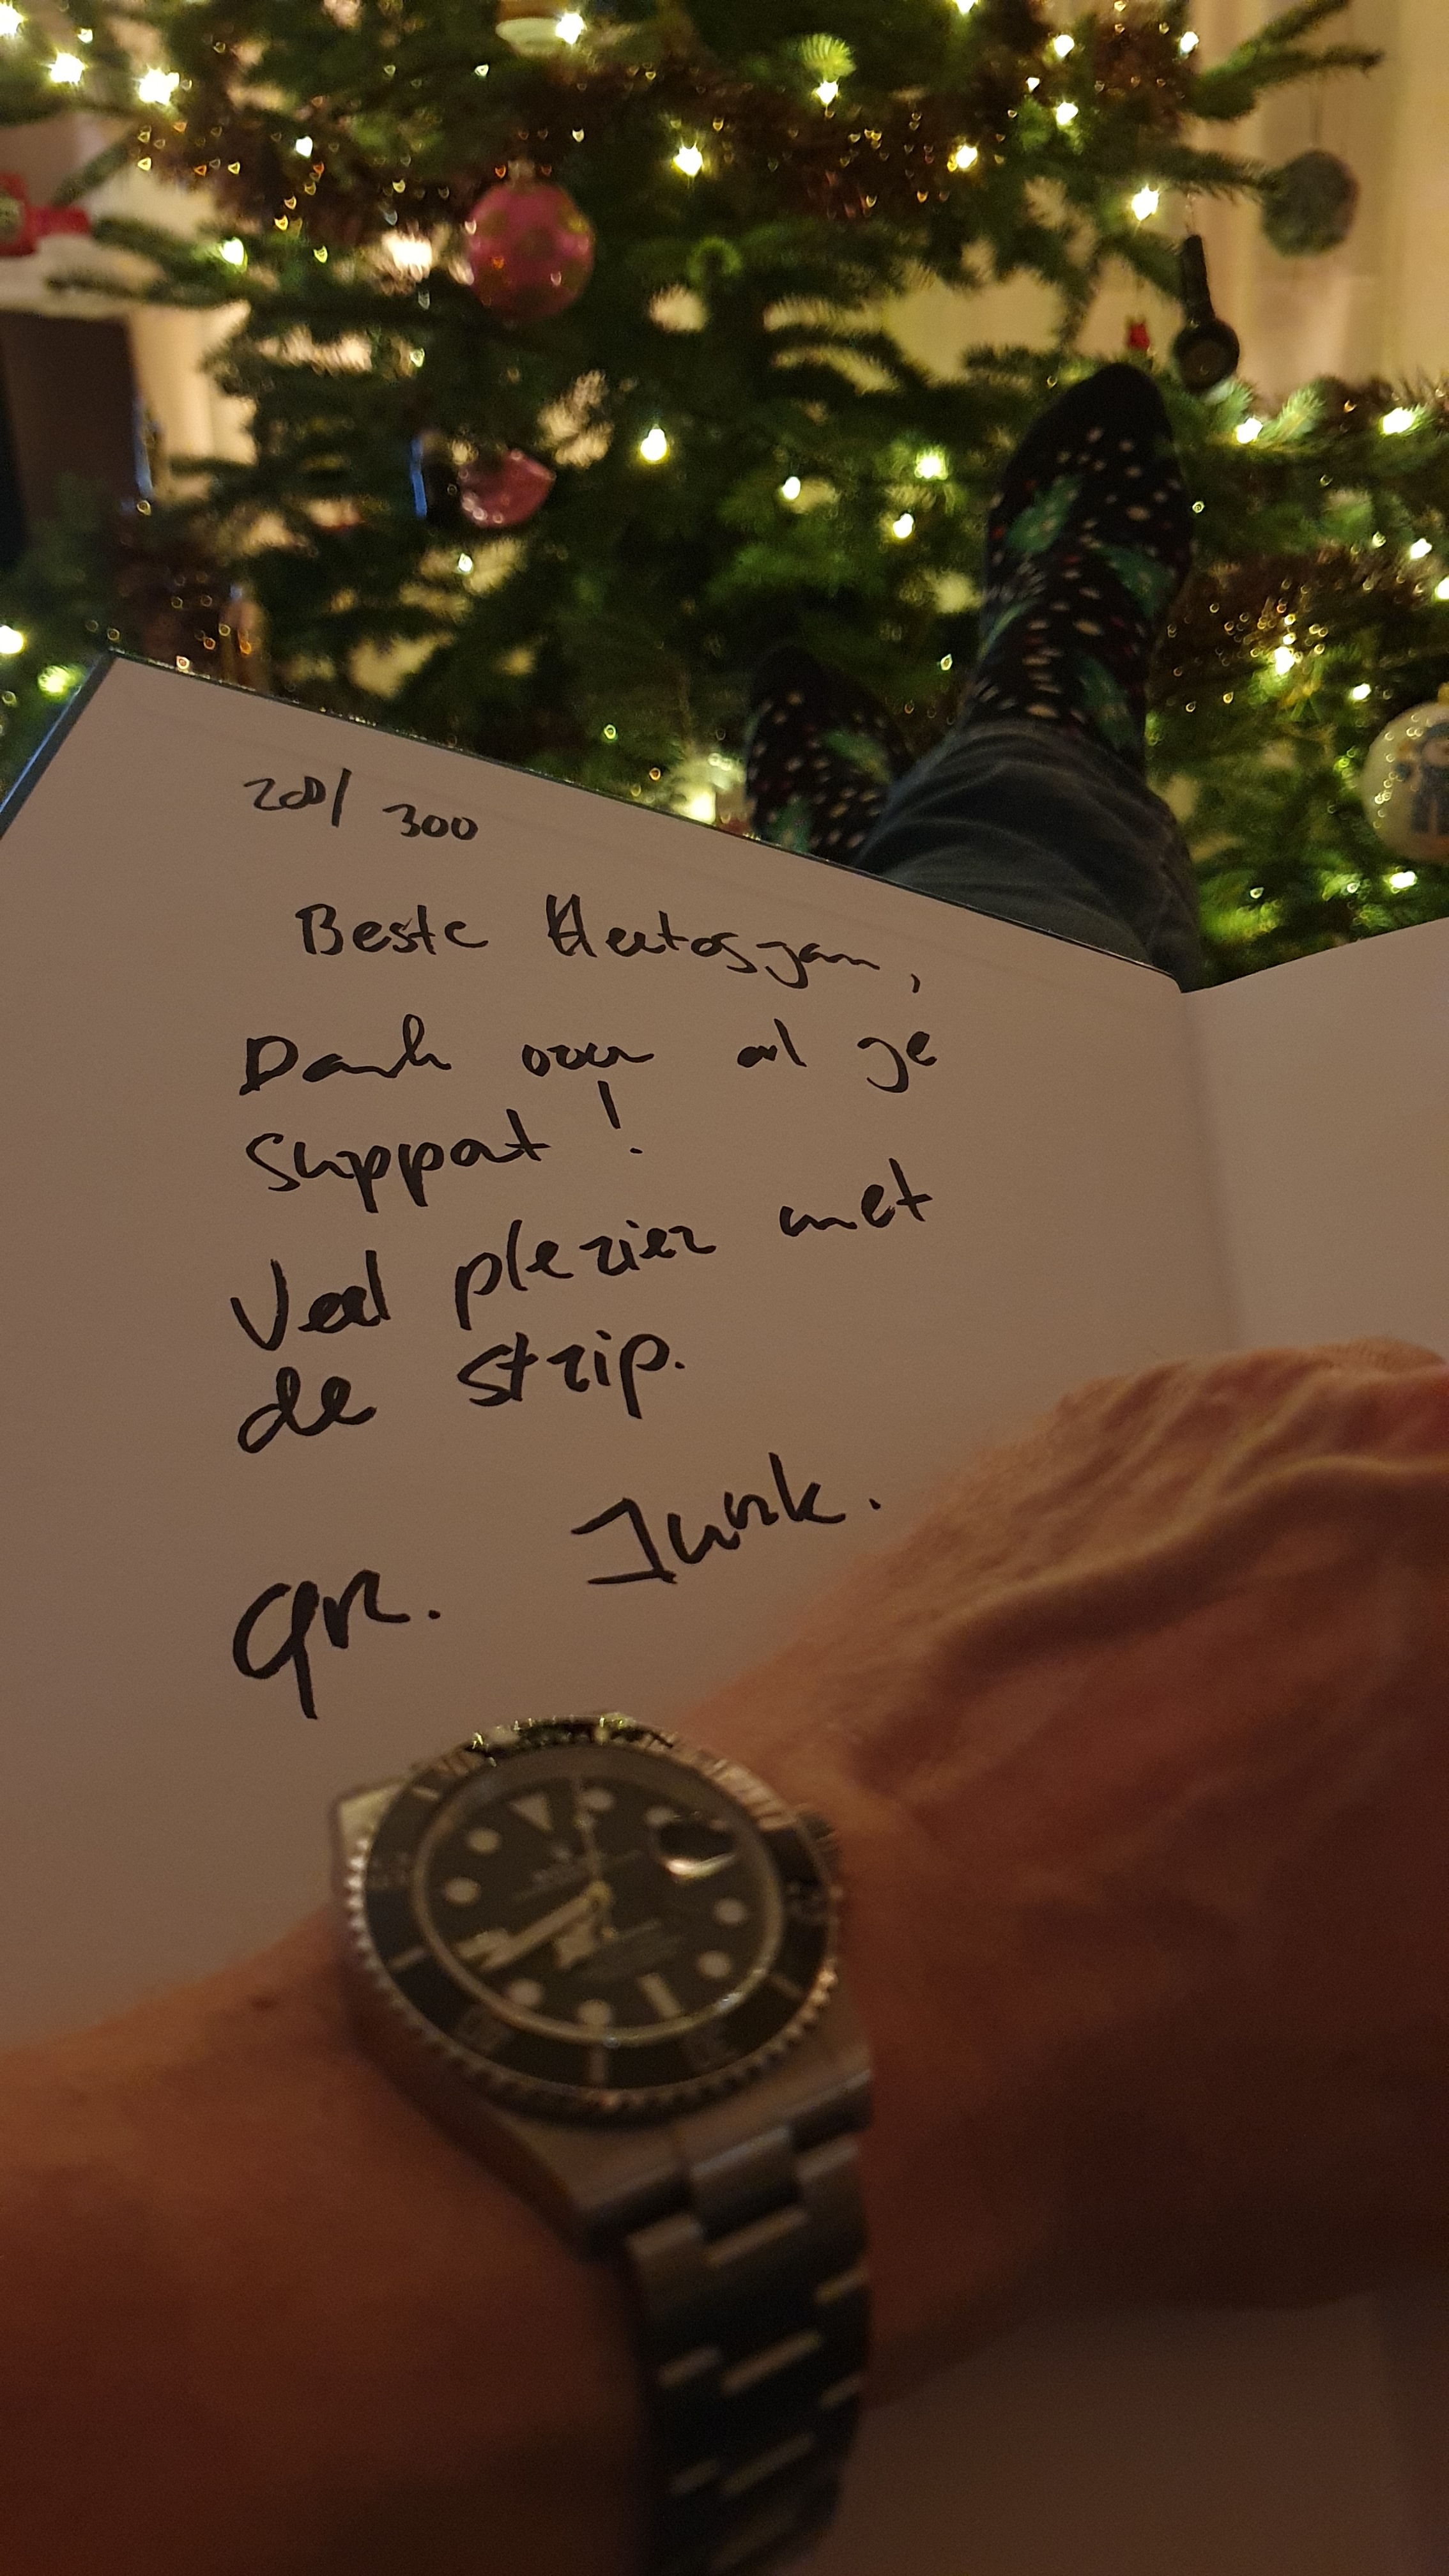 200/300
Beste Hertogjan,
Dank voor al je
support!
Veel plezier met
de strip.
Gr. Junk.